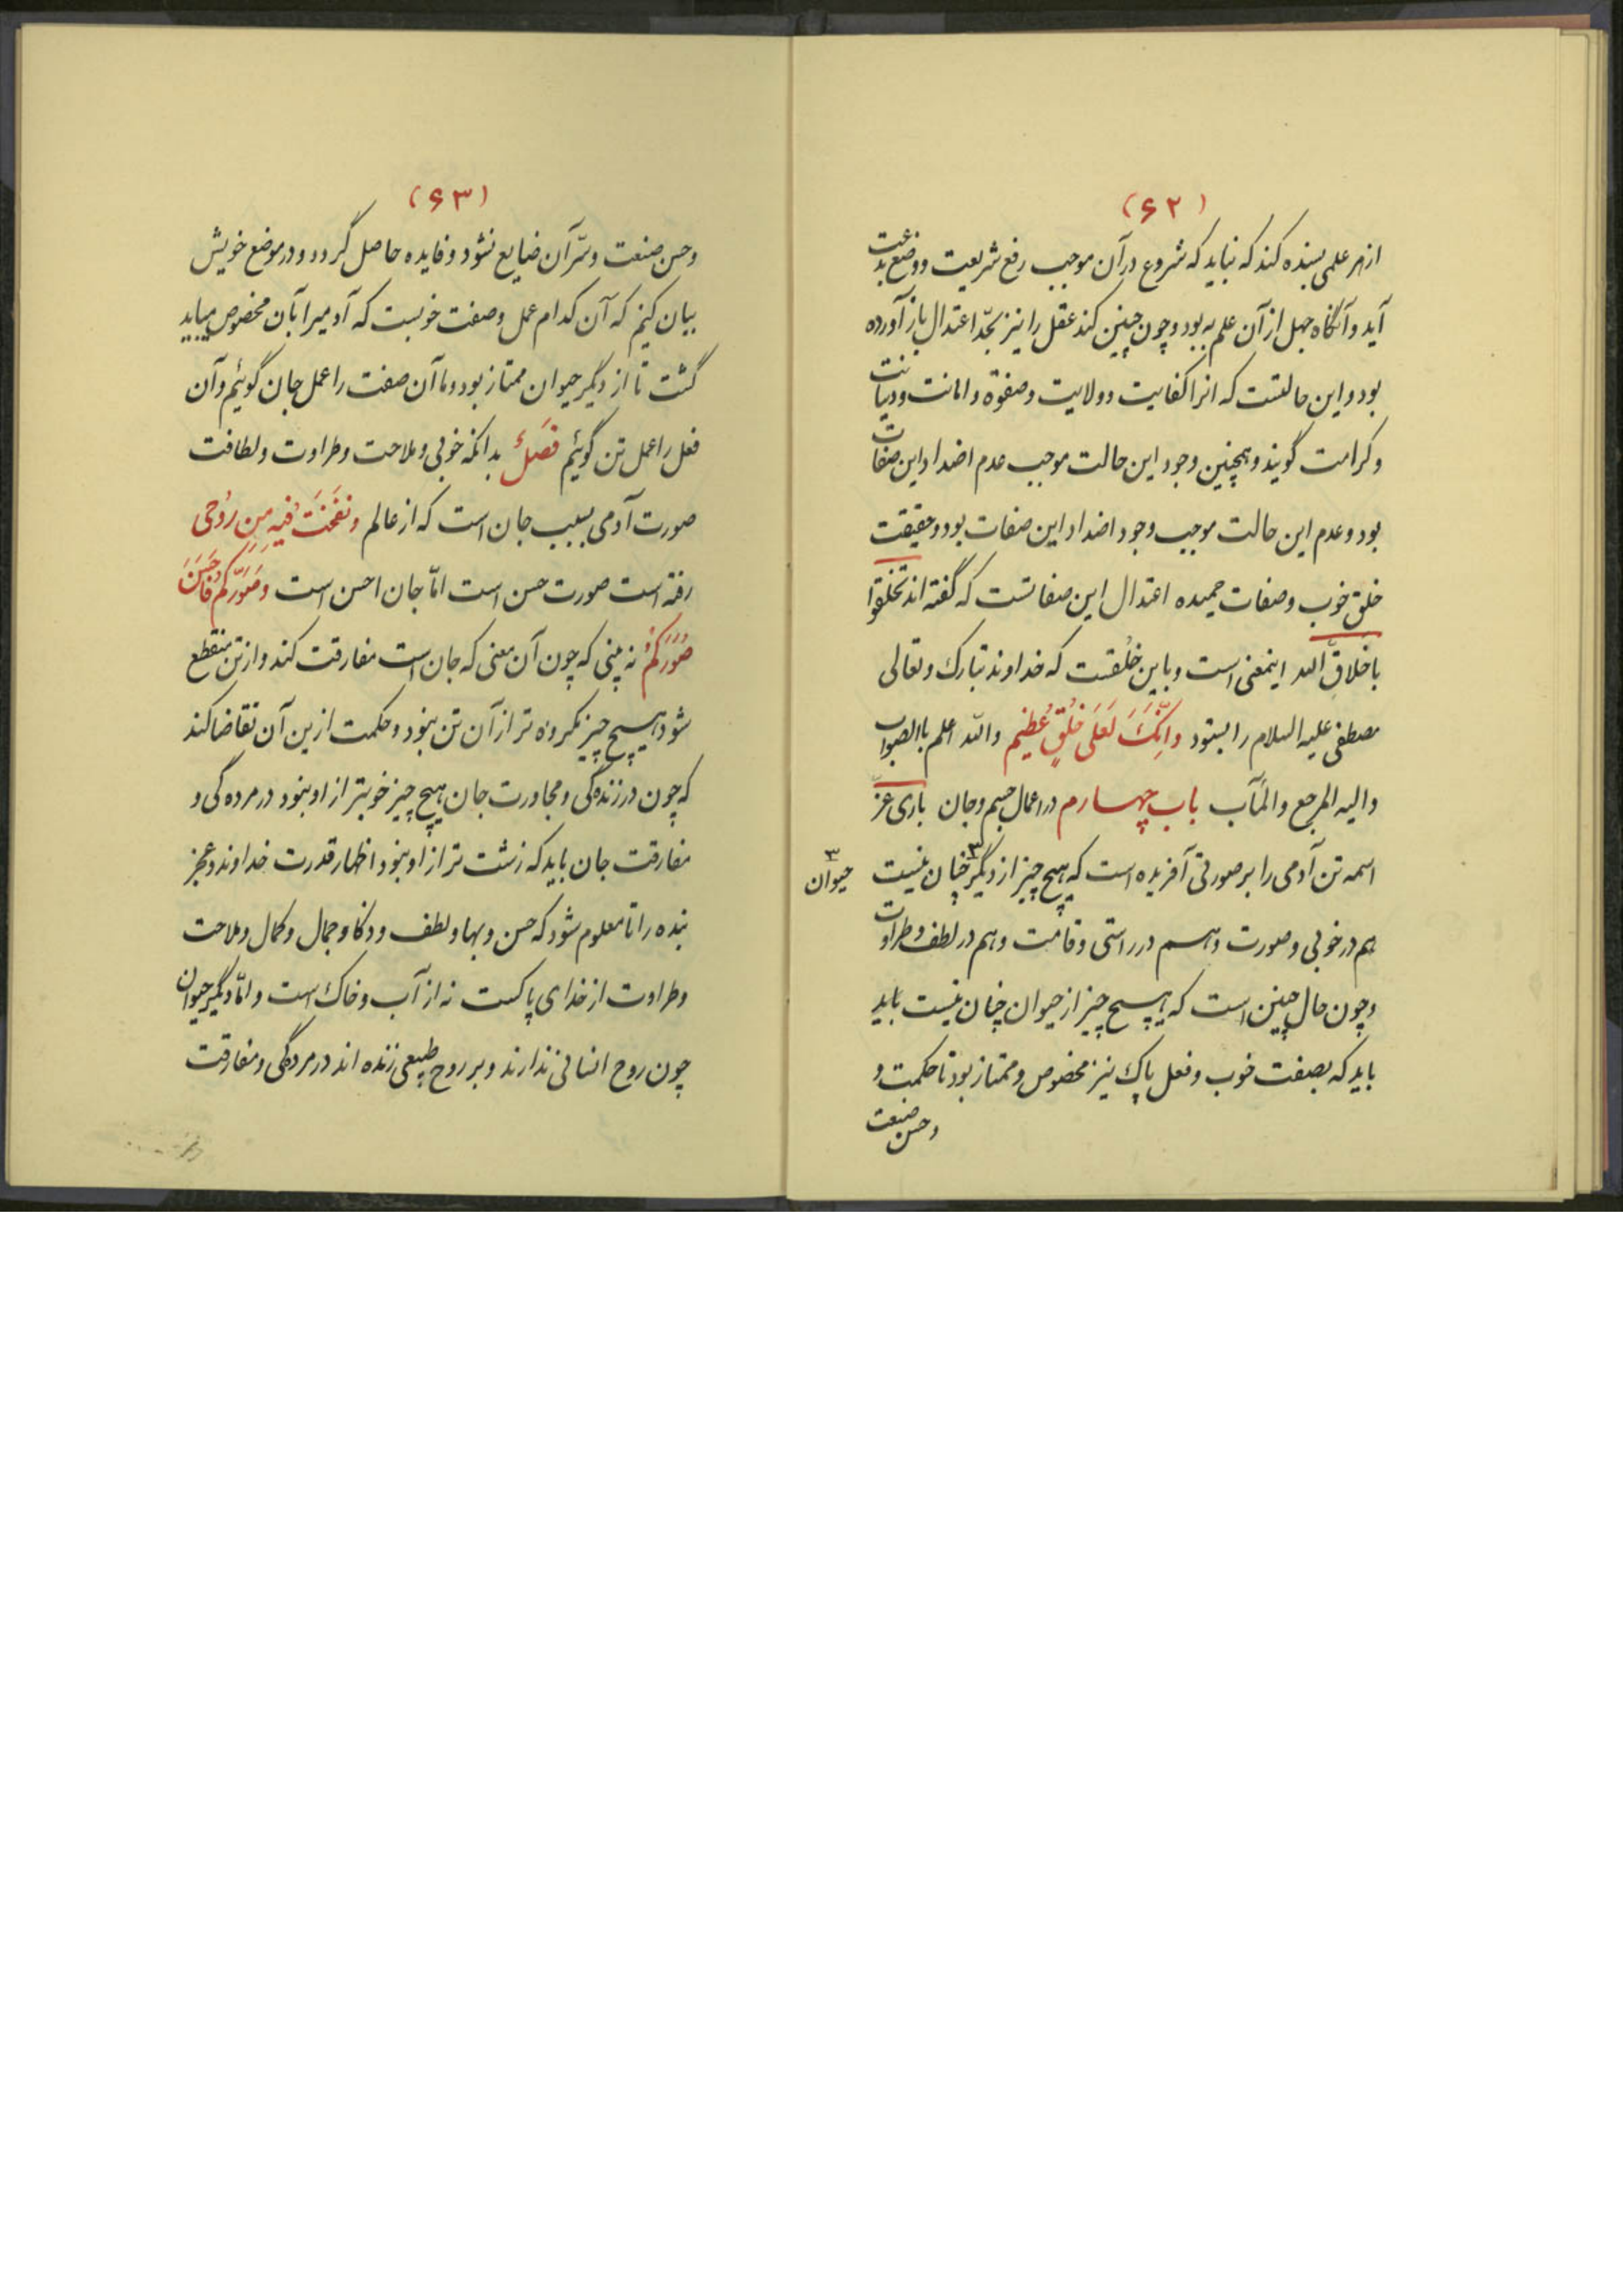 (۶۲)
از هر علمی بسنده کند که نباید که شروع در آن موجب رفع شریعت و وضع بدعت
آید و آنگاه جهل از آن علم به بود و چون چنین کند عقل را نیز بحدّ اعتدال باز آورده
بود و این حالتست که انرا کفایت و ولایت و صفوة و امانت و دیانت
و کرامت گویند و همچنین وجود این حالت موجب عدم اضداد این صفات
بود و عدم این حالت موجب وجود اضداد این صفات بود و حقیقت
خلق خوب و صفات حمیده اعتدال این صفاتست که گفته اند تخلقوا
باخلاق الله اینمعنی است و باین خلقست که خداوند تبارک و تعالی
مصطفی علیه السلام را بستود وَاِنَّکَ لَعَلَی خُلُقٍ عَظیم والله اعلم باالصواب
والیه المرجع والمآب باب چهارم در اعمال جسم و جان باری عزّ
اسمه تن آدمی را بر صورتی آفریده است که هیچ چیز از دیگر ۳ چنان نیست
۳ حیوان
هم در خوبی و صورت و هم در راستی و قامت و هم در لطف و طراوت
و چون حال چنین است که هیچ چیز از حیوان چنان نیست باید
باید که بصفت خوب و فعل پاک نیز مخصوص و ممتاز بود تا حکمت و
و حسن صنعت
(۶۳)
و حسن صنعت و سرّ آن ضایع نشود و فایده حاصل گردد و در موضع خویش
بیان کنیم که آن کدام عمل و صفت خوبست که آدمیرا بآن مخصوص میباید
گشت تا از دیگر حیوان ممتاز بود و ما آن صفت را عمل جان گوئیم و آن
فعل را عمل تن گوئیم فصلٌ بدانکه خوبی و ملاحت و طراوت و لطافت
صورت آدمی بسبب جان است که از عالم وَنَفَخْتُ فیهِ مِن رُوُحی
رفته است صورت حسن است امّا جان احسن است وَصَوَّرَکُمْ فَاَحْسَنَ
صُوَرَکُمْ نه بینی که چون آن معنی که جان است مفارقت کند و از تن منقطع
شود هیچ چیز مکروه تر از آن تن نبود و حکمت ازین آن تقاضا کند
که چون در زنده گی و مجاورت جان هیچ چیز خوبتر از او نبود در مرده گی و
مفارقت جان باید که زشت تر از او نبود اظهار قدرت خداوند و عجز
بنده را تا معلوم شود که حسن و بها و لطف و ذکا و جمال و کمال و ملاحت
و طراوت از خدای پاکست نه از آب و خاک است و امّا دیگر حیوان
چون روح انسانی ندارند و بر روح طبیعی زنده اند در مردگی و مفارقت